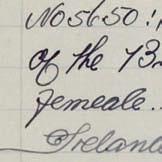 No 5650:
of the 13
Femeale..
Ireland